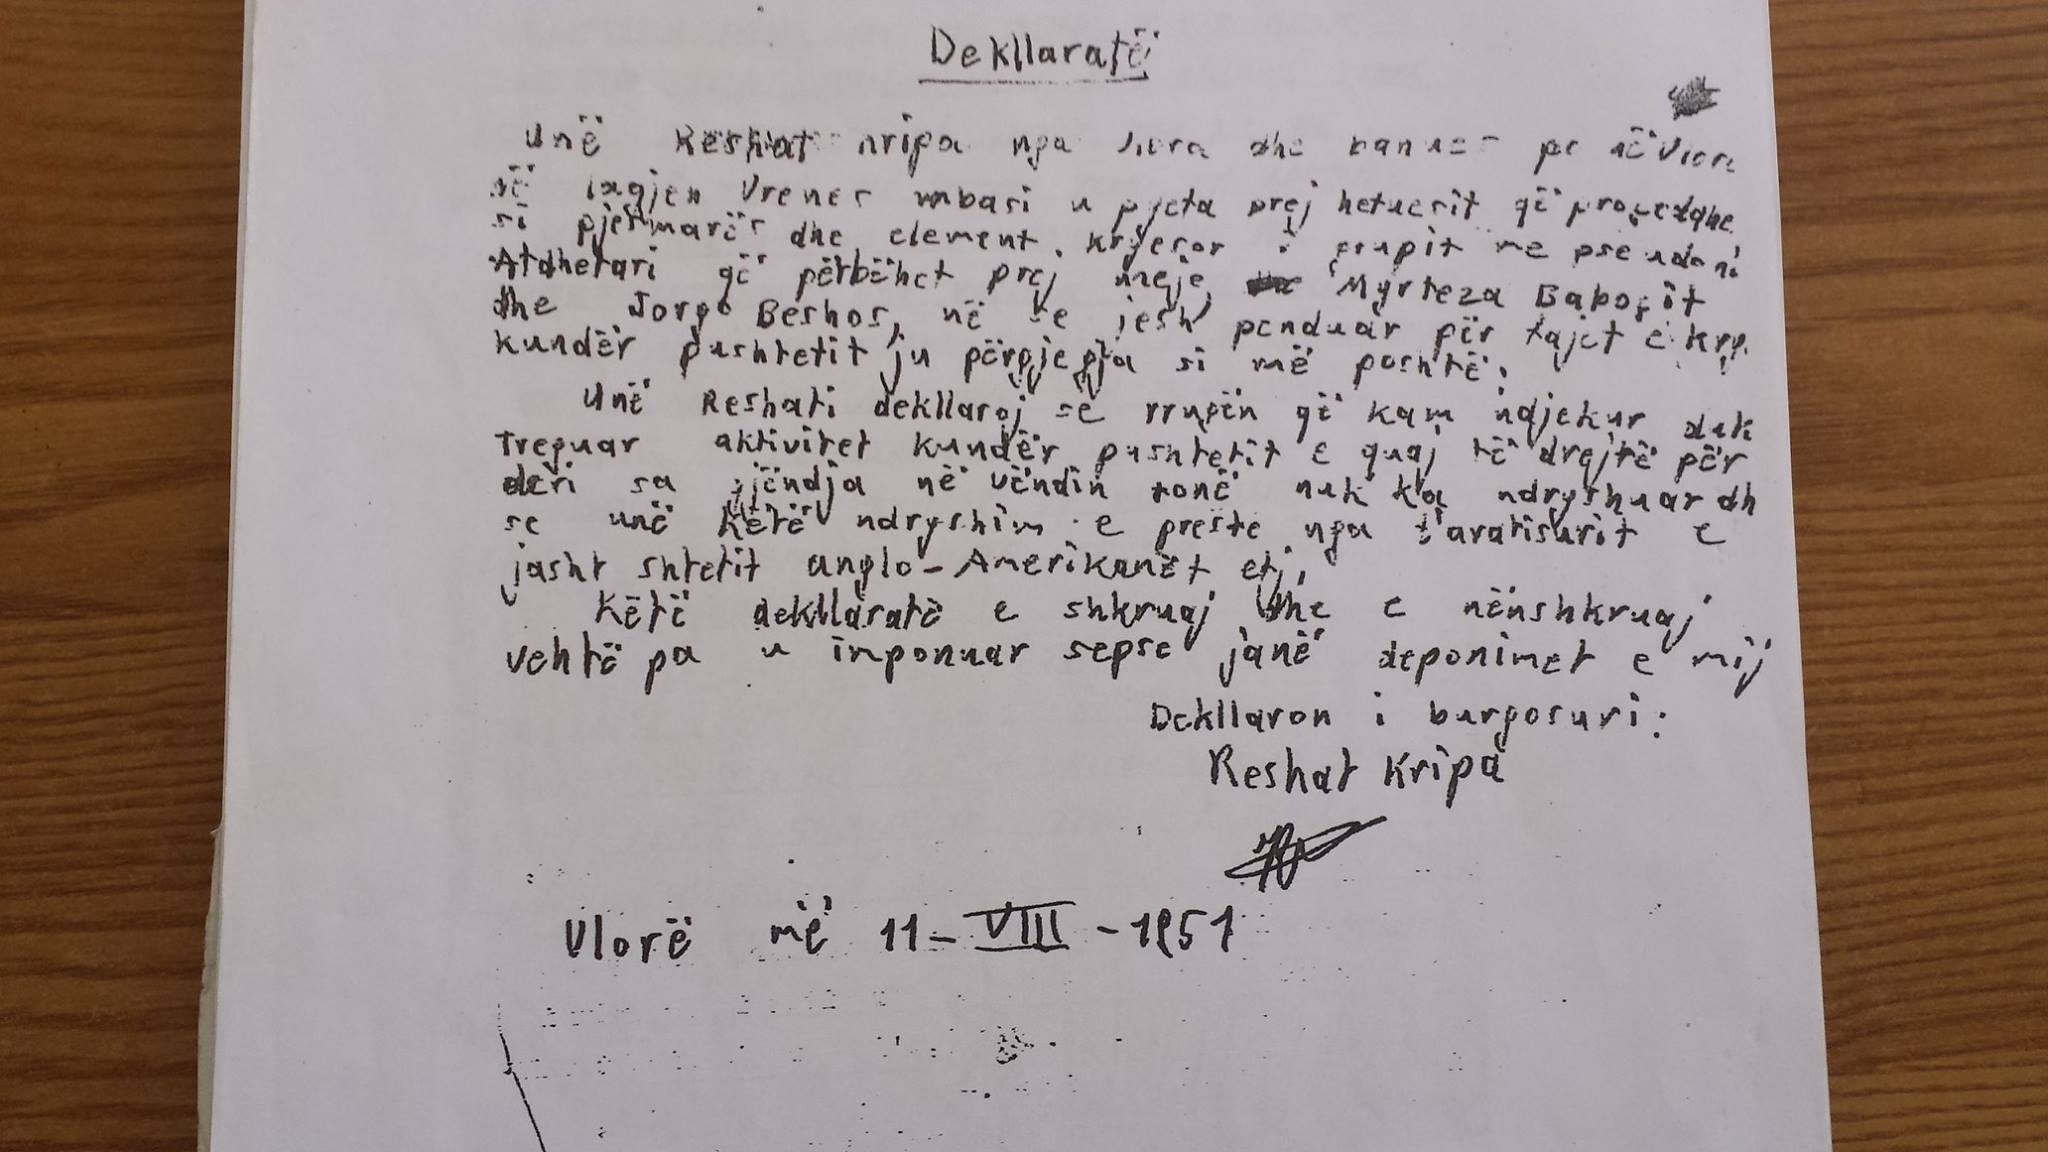 Dekllaratë
Unë Reshat Kripa nga Vlora dhe banues
lagjen Vrenes mbasi u pyeta prej hetuesit që
si pjesmarës dhe element kryesor i grupit me pseudoni
Atdhetari që përbëhet prej meje, Myrteza Baboçit
dhe Jorgo Beshos, në se jesh penduar për fajet e kry.
kundër pushtetit ju përgjegja si më poshtë:
Unë Reshati dekllaroj se rrugën që kam ndjekur duk
treguar aktivitet kundër pushtetit e quaj të drejtë për
deri sa gjëndja në vëndin tonë nuk ka ndryshuar dh
se unë këtë ndryshim e preste nga t'aratisurit e
jasht shtetit anglo-Amerikanët etj.
Këtë dekllaratë e shkruaj dhe e nënshkruaj
vehtë pa u imponuar sepse janë deponimet e mij
Dekllaron i burgosuri:
Reshat Kripa
Vlorë më 11-VIII-1951